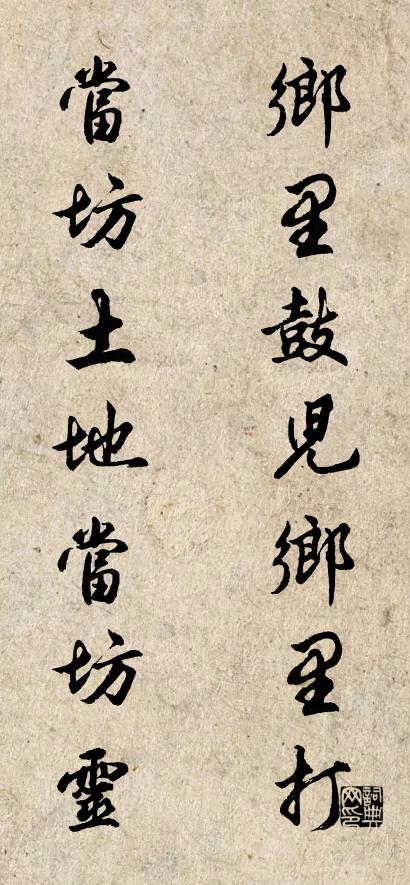 鄉里鼓兒鄉里打
當坊土地當坊靈
詞典
网印